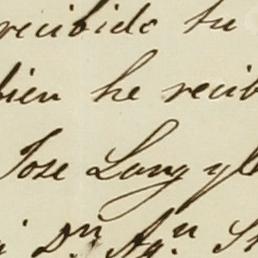 recibido tu
bien he recib
Jose Lang y
Dn Agn